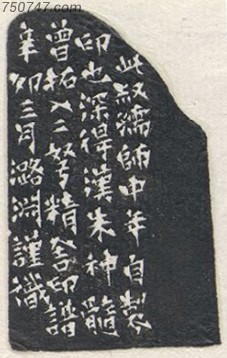 750747.com
此叔孺師中年自製
印也深得漢朱神髓
曾拓入二弩精舍印譜
辛卯三月潞淵謹識